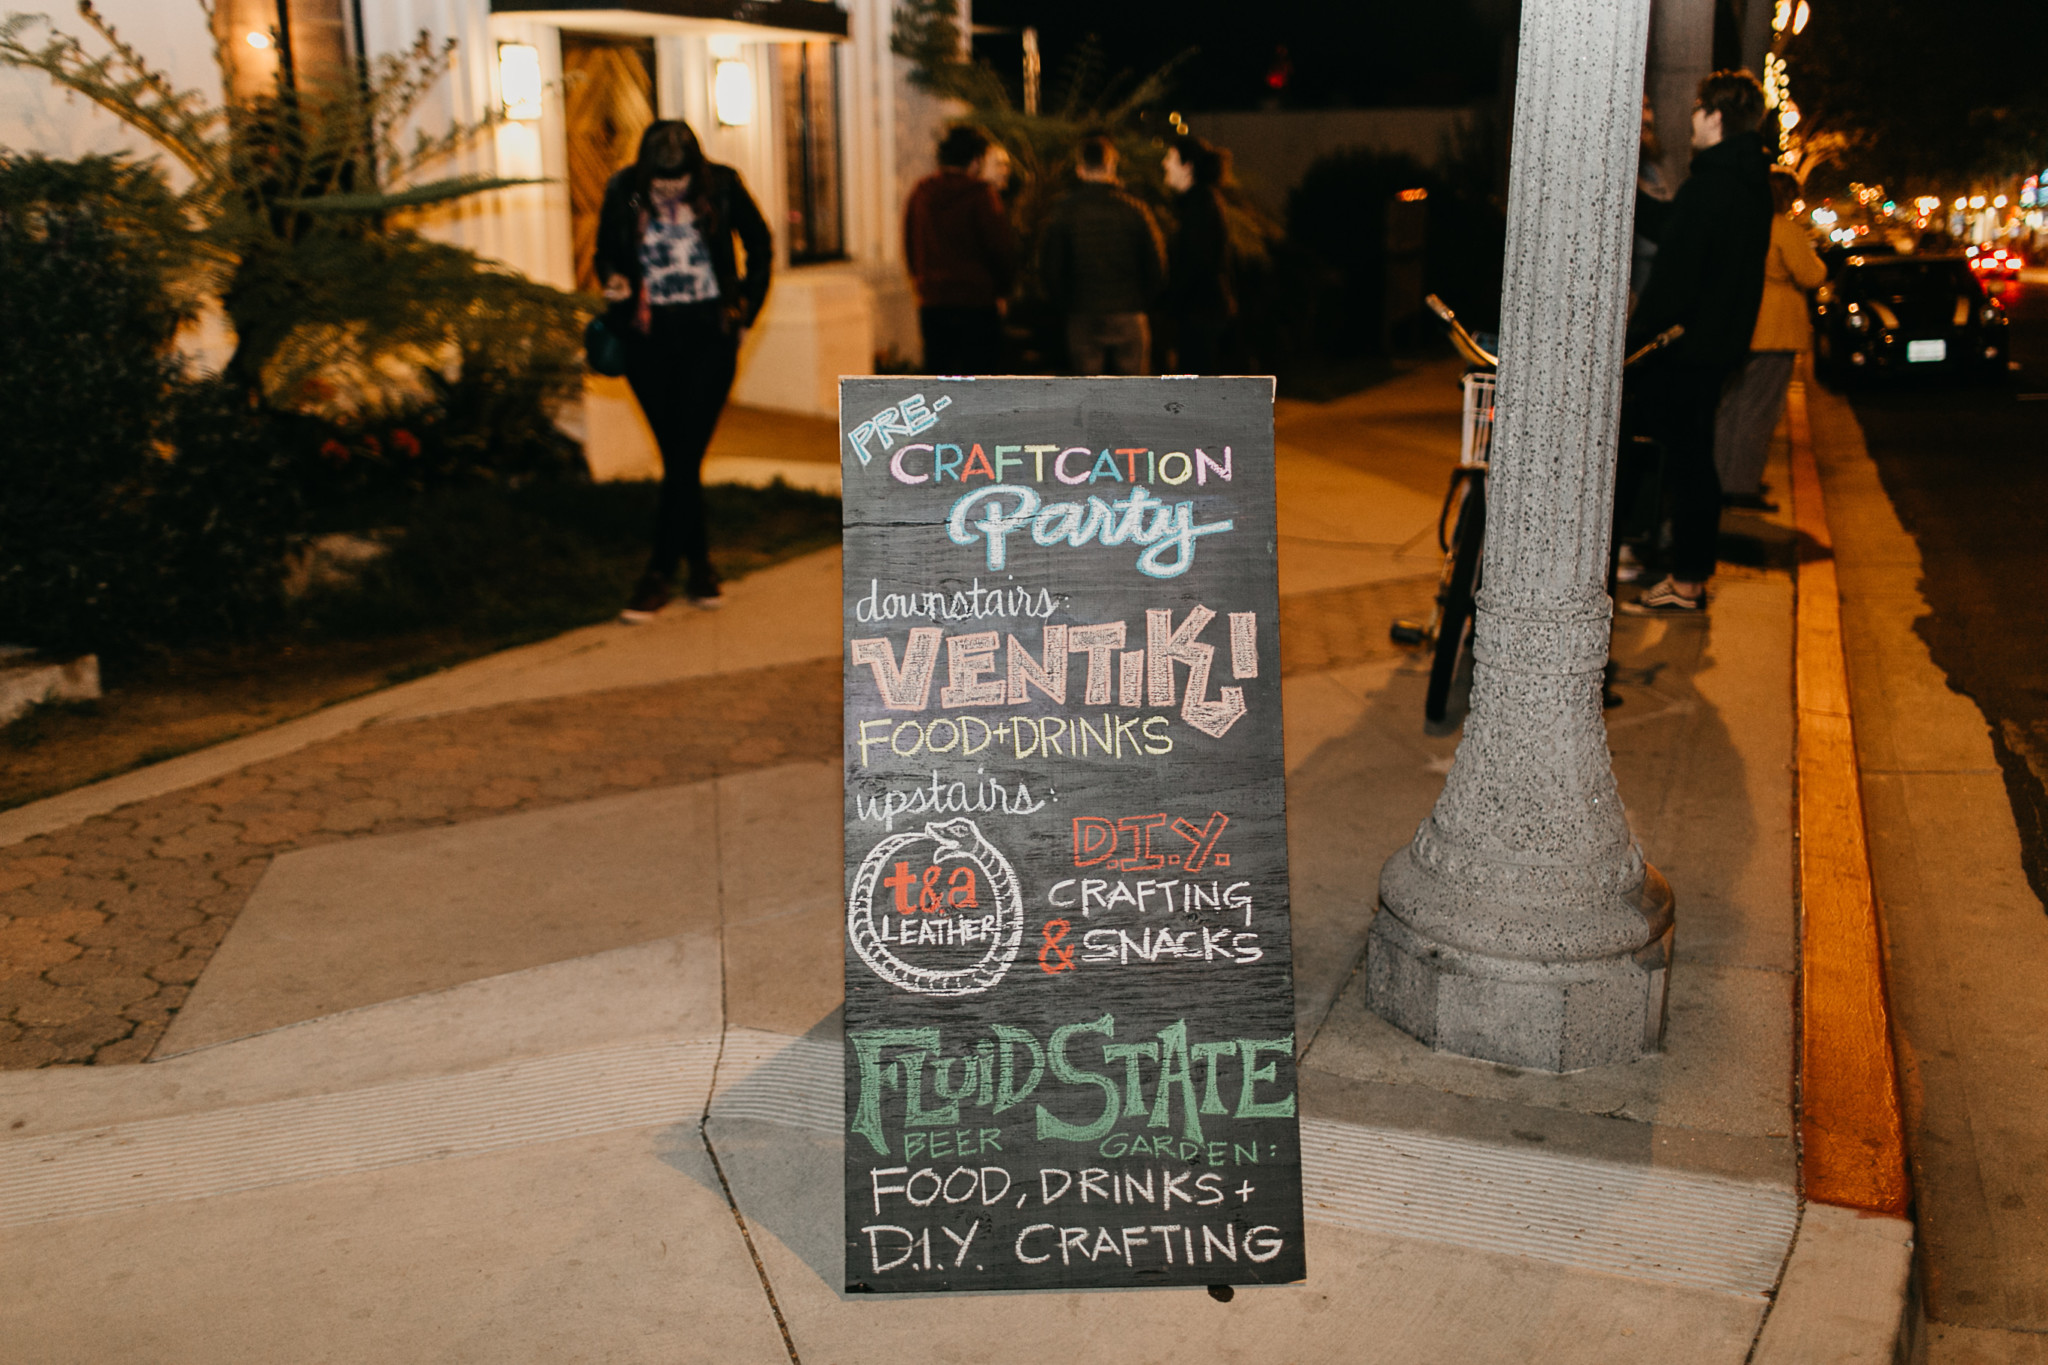 PRE-
CRAFTCATION
Party
downstairs:
VENTIKI!
FOOD+DRINKS
upstairs:
t&a
LEATHER
D.I.Y.
CRAFTING
& SNACKS
FLUID STATE
BEER GARDEN:
FOOD, DRINKS +
D.I.Y. CRAFTING